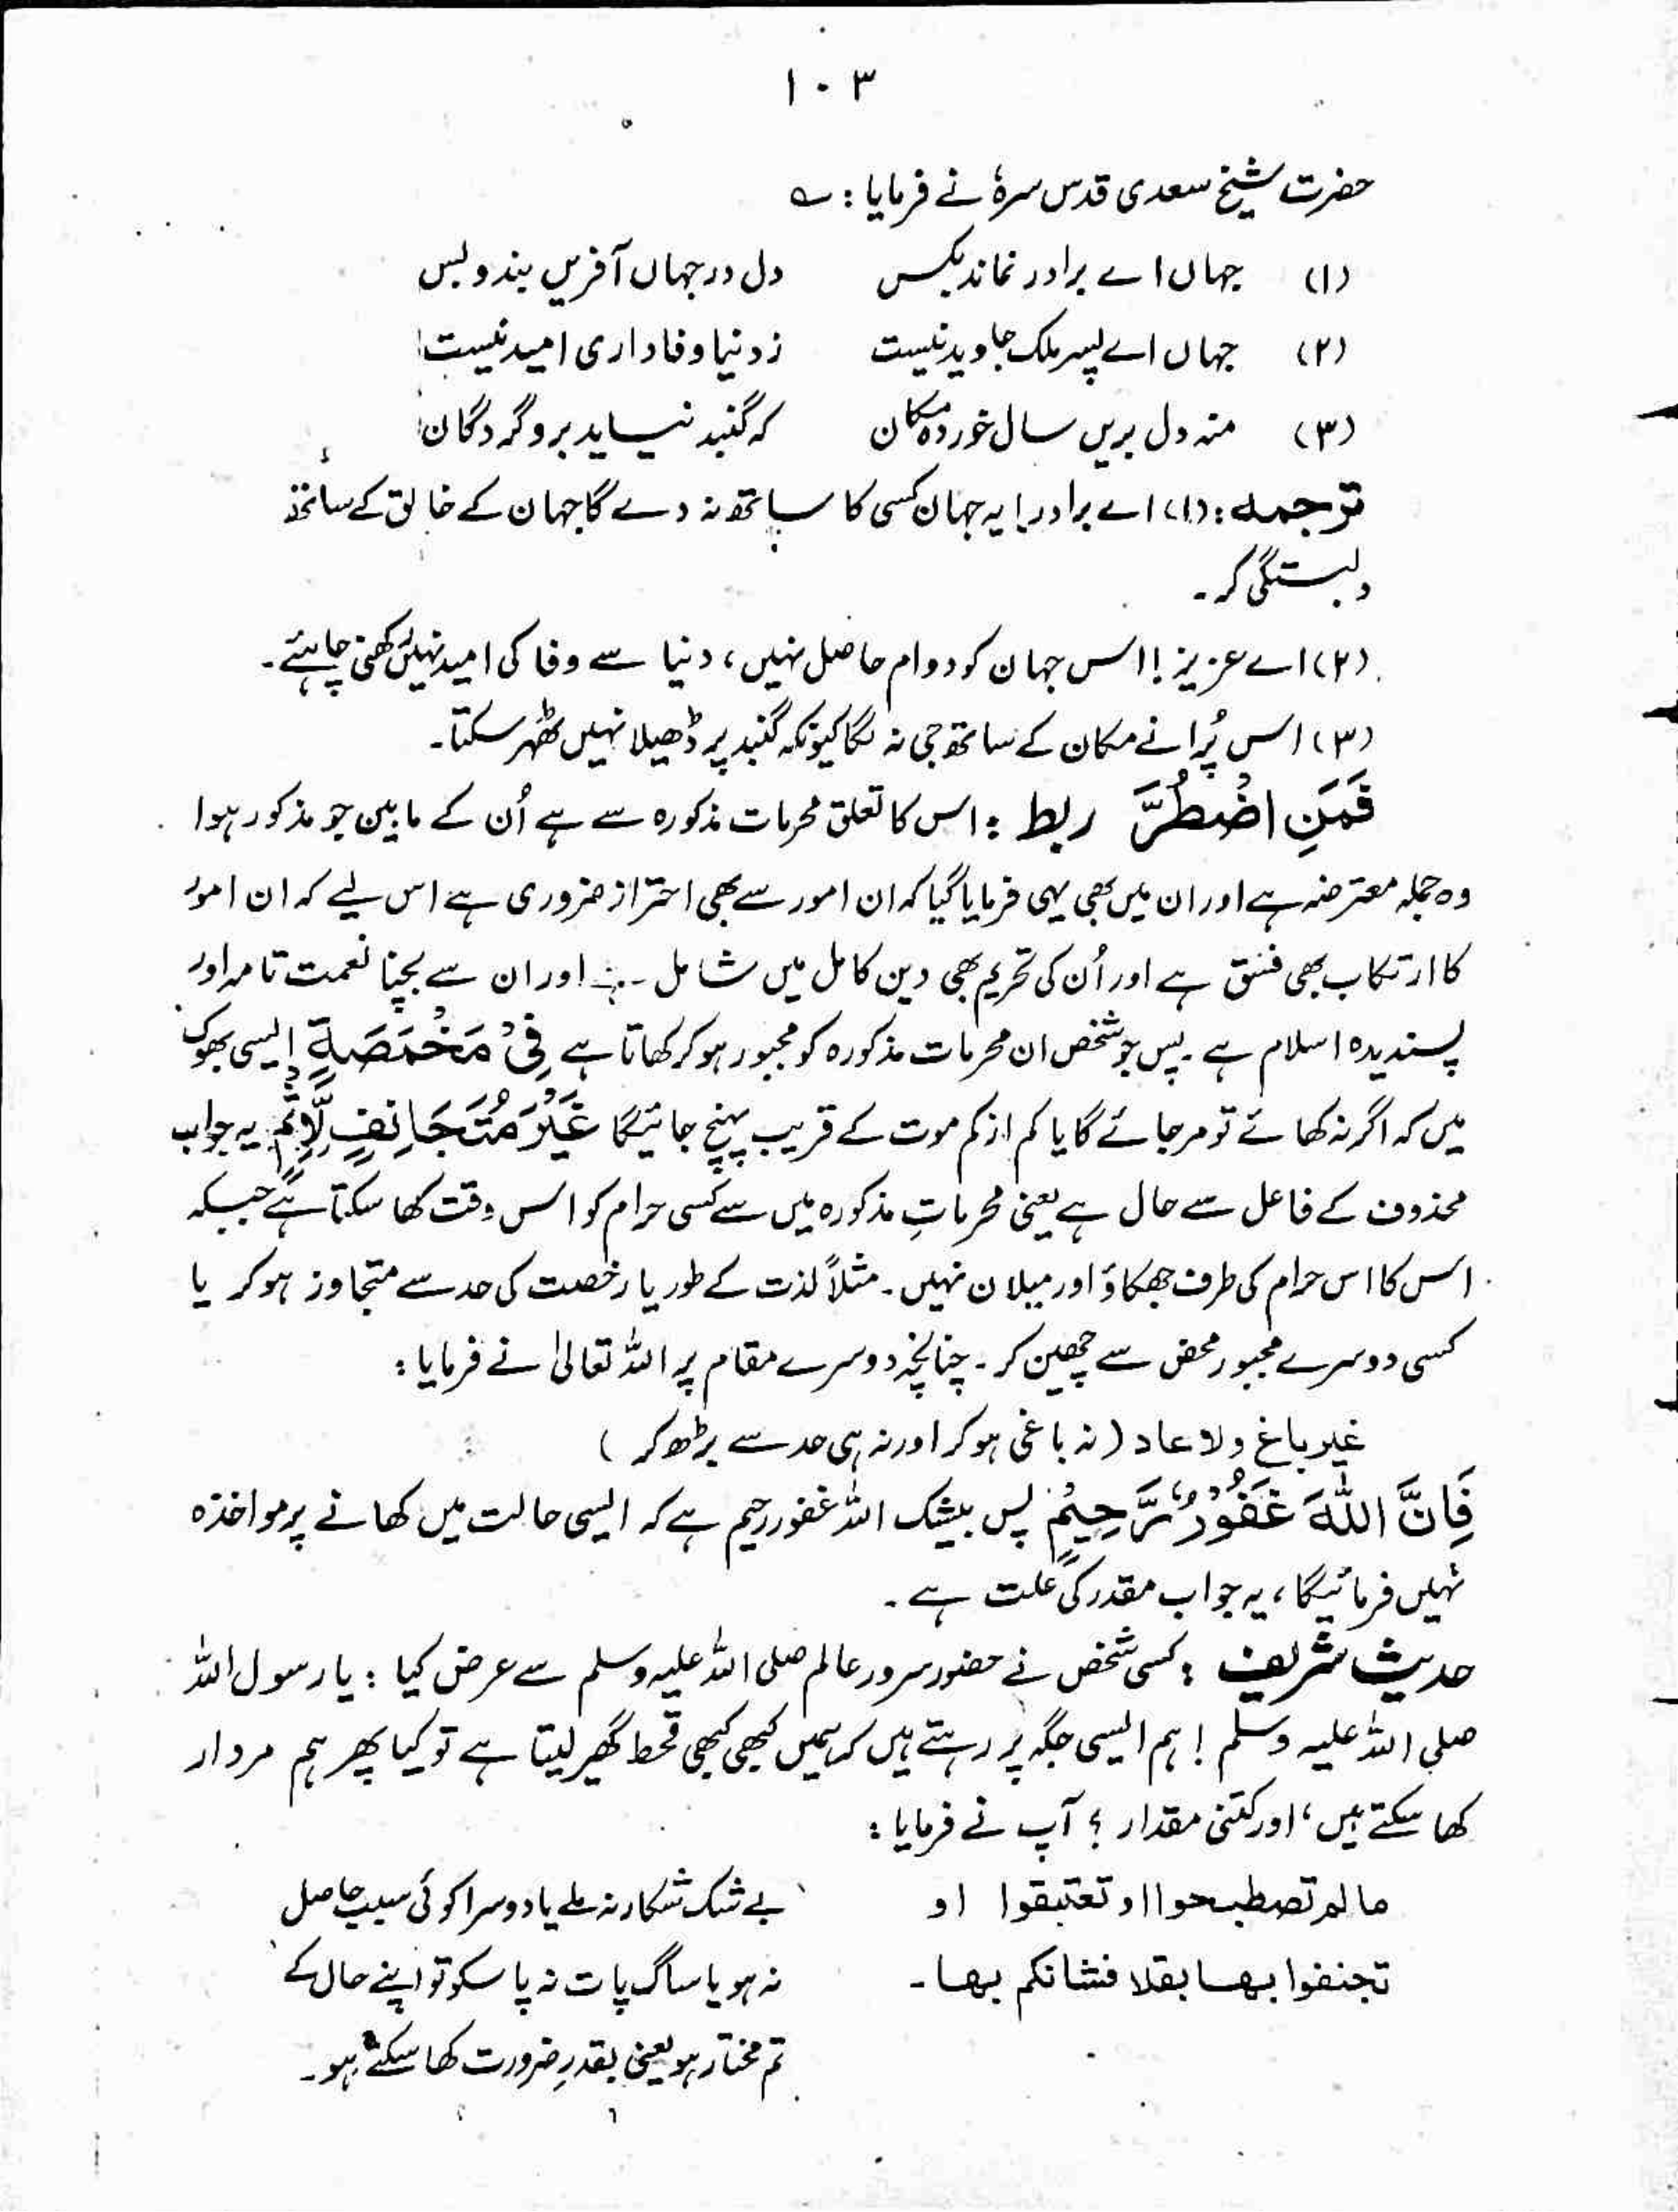 ۱۰۳
حضرت شیخ سعدی قدس سرہٗ نے فرمایا : ؎
(۱) جہاں اے برادر نماند بکس دل در جہاں آفریں بند و بس
(۲) جہاں اے پسر ملک جاوید نیست ز دنیا وفاداری امید نیست
(۳) منہ دل بریں سال خوردہ مکان کہ گنبد نیساید بروگردگان
ترجمہ : (۱) اے برادر! یہ جہان کسی کا ساتھ نہ دے گا جہان کے خالق کے ساتھ
دلبستگی کر۔
(۲) اے عزیز! اس جہان کو دوام حاصل نہیں، دنیا سے وفا کی امید نہیں رکھنی چاہئے۔
(۳) اس پُرانے مکان کے ساتھ جی نہ لگا کیونکہ گنبد پر ڈھیلا نہیں ٹھہر سکتا۔
فَمَنِ اضْطُرَّ ربط : اس کا تعلق محرمات مذکورہ سے ہے اُن کے مابین جو مذکور ہوا
وہ جملہ معترضہ ہے اور ان میں بھی یہی فرمایا گیا کہ ان امور سے بھی احتراز ضروری ہے اس لیے کہ ان امور
کا ارتکاب بھی فسق ہے اور اُن کی تحریم بھی دین کامل میں شامل اور ان سے بچنا نعمت تامہ اور
پسندیدہ اسلام ہے۔ پس جو شخص ان محرمات مذکورہ کو مجبور ہو کر کھاتا ہے فِیْ مَخْمَصَةٍ ایسی بھوک
میں کہ اگر نہ کھائے تو مر جائے گا یا کم از کم موت کے قریب پہنچ جائیگا غَیْرَ مُتَجَانِفٍ لِّاِثْمٍ یہ جواب
محذوف کے فاعل سے حال ہے یعنی محرماتِ مذکورہ میں سے کسی حرام کو اس وقت کھا سکتا ہے جبکہ
اس کا اس حرام کی طرف جھکاؤ اور میلان نہیں۔ مثلاً لذت کے طور یا رخصت کی حد سے متجاوز ہو کر یا
کسی دوسرے مجبور محض سے چھین کر۔ چنانچہ دوسرے مقام پر اللہ تعالیٰ نے فرمایا :
غیر باغ ولا عاد (نہ باغی ہو کر اور نہ ہی حد سے بڑھ کر )
فَاِنَّ اللّٰهَ غَفُوْرٌ رَّحِیْمٌ پس بیشک اللہ غفور رحیم ہے کہ ایسی حالت میں کھانے پر مواخذہ
نہیں فرمائیگا، یہ جواب مقدر کی علت ہے۔
حدیث شریف : کسی شخص نے حضور سرور عالم صلی اللہ علیہ وسلم سے عرض کیا : یا رسول اللہ
صلی اللہ علیہ وسلم ! ہم ایسی جگہ پر رہتے ہیں کہ ہمیں کبھی کبھی قحط گھیر لیتا ہے تو کیا پھر ہم مردار
کھا سکتے ہیں، اور کتنی مقدار ؟ آپ نے فرمایا :
مالم تصطبحوا او تعتبقوا او
تجنفوا بها بقلا فشانكم بها۔
بے شک شکار نہ ملے یا دوسرا کوئی سبب حاصل
نہ ہو یا ساگ پات نہ پا سکو تو اپنے حال کے
تم مختار ہو یعنی بقدرِ ضرورت کھا سکتے ہو۔